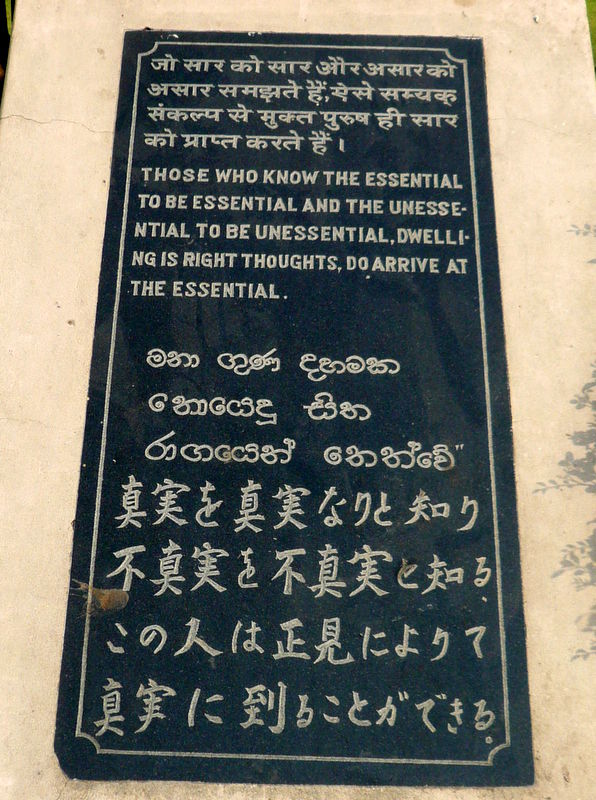 जो सार को सार और असार को
असार समझते हैं, ऐसे सम्यक्
संकल्प से मुक्त पुरुष ही सार
को प्राप्त करते हैं ।
THOSE WHO KNOW THE ESSENTIAL
TO BE ESSENTIAL AND THE UNESSE-
NTIAL TO BE UNESSENTIAL, DWELLI-
NG IS RIGHT THOUGHTS, DO ARRIVE AT
THE ESSENTIAL.
මනා ගුණ දහමක
නොයෙදූ සිත
රාගයෙන් තෙත්වේ"
真実を真実なりと知り
不真実を不真実と知る、
この人は正見によりて
真実に到ることができる。